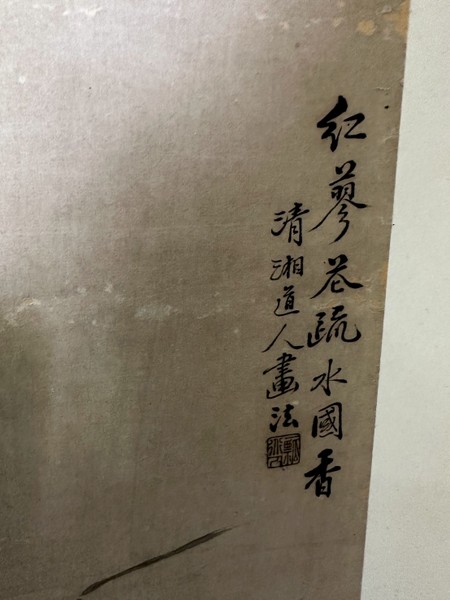 紅蓼花疏水國香
清湘道人畫法